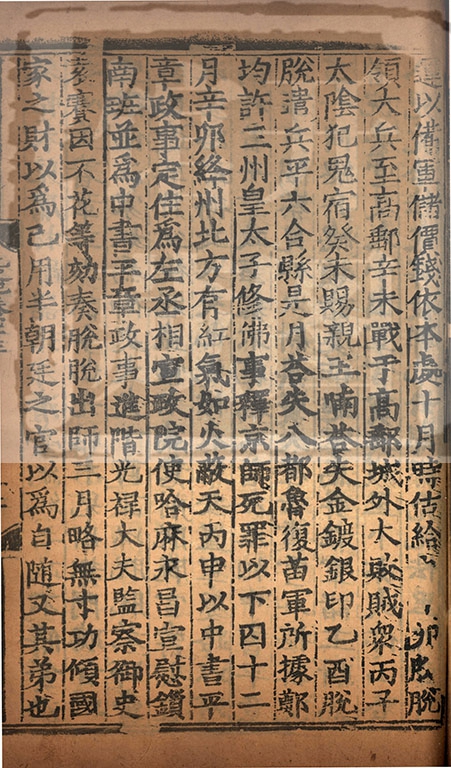 以備軍儲價錢依本處十月時估給卯脫
領大兵至高郵辛未戰于高郵城外大敗賊衆丙子
太陰犯鬼宿癸未賜親王喃荅失金鍍銀印乙酉脫
脫遣兵平六合縣是月荅失八都魯復苗軍所據鄭
均許三州皇太子修佛事釋京師死罪以下囚十二
月辛卯絳州北方有紅氣如火蔽天丙申以中書平
章政事定住爲左丞相宣政院使哈麻永昌宣慰鎖
南班並爲中書平章政事進階光祿大夫監察御史
袁賽因不花等劾奏脫脫出師三月略無寸功傾國
家之財以爲己用半朝廷之官以爲自随又其弟也